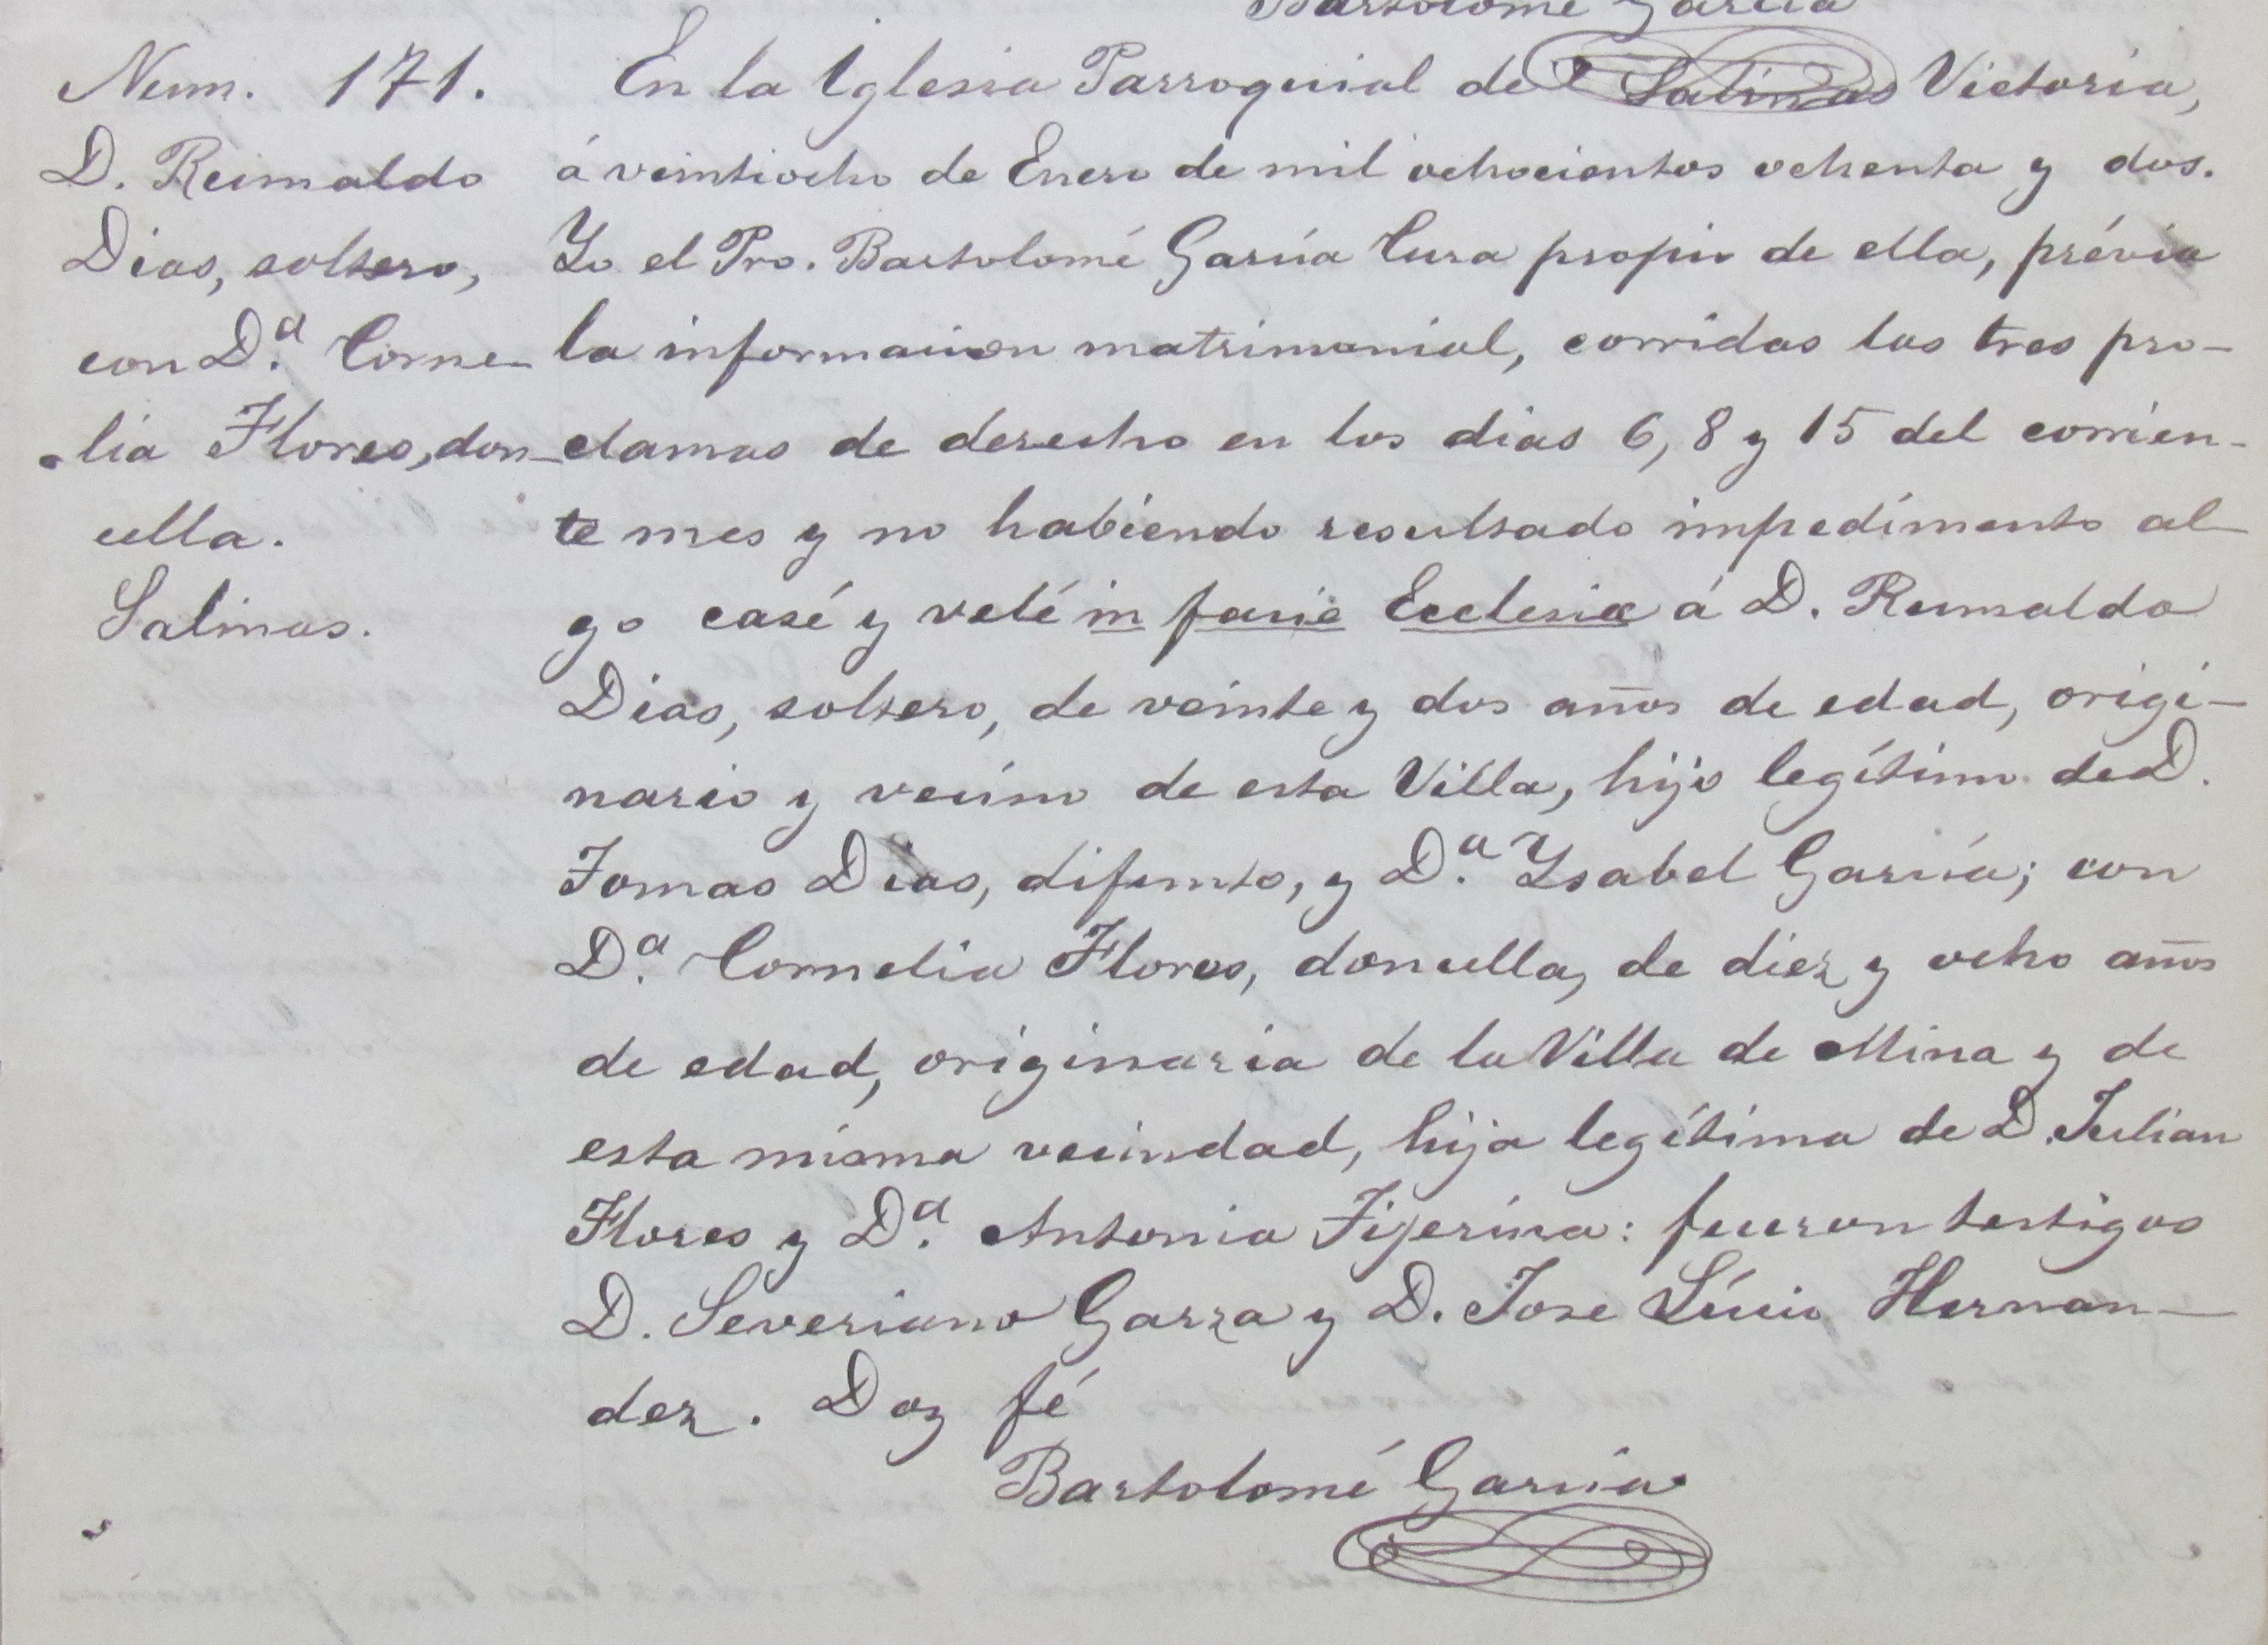 Bartolomé García
Num. 171.
D. Reimaldo
Dias, soltero,
con D.ª Corne-
lia Flores, don-
cella.
Salinas.
En la Iglesia Parroquial de Salinas Victoria,
á veintiocho de Enero de mil ochocientos ochenta y dos.
Yo el Pro. Bartolomé García Cura propio de ella, prévia
la informacion matrimonial, corridas las tres pro-
clamas de derecho en los dias 6, 8 y 15 del corrien-
te mes y no habiendo resultado impedimento al-
go casé y velé in facie Ecclesiæ á D. Reimaldo
Dias, soltero, de veinte y dos años de edad, origi-
nario y vecino de esta Villa, hijo legítimo de D.
Tomas Dias, difunto, y D.ª Ysabel García; con
D.ª Cornelia Flores, doncella, de diez y ocho años
de edad, originaria de la Villa de Mina y de
esta misma vecindad, hija legítima de D. Julian
Flores y D.ª Antonia Tijerina: fueron testigos
D. Severiano Garza y D. Jose Lúcio Hernan-
dez. Doy fé
Bartolomé García